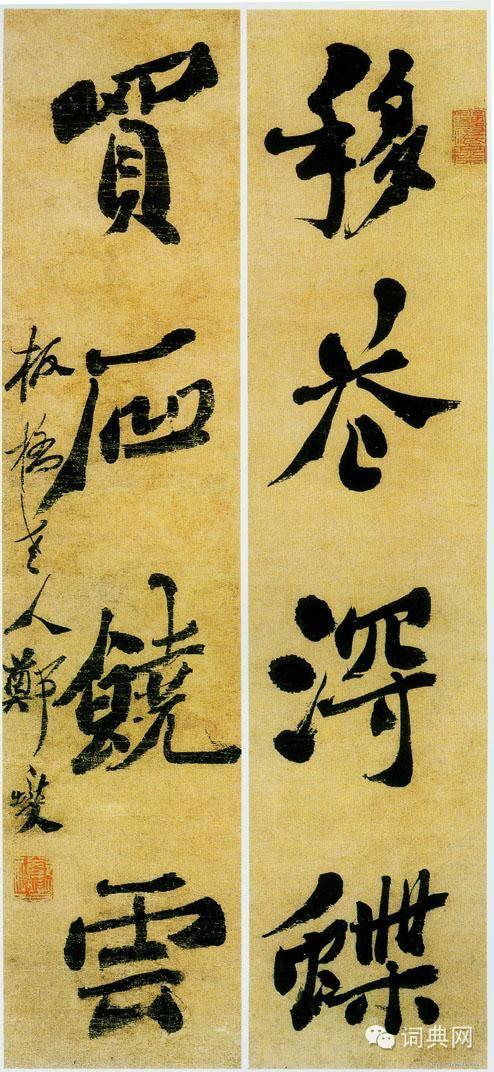 移花得蝶
買石饒雲
板橋老人鄭燮
词典网